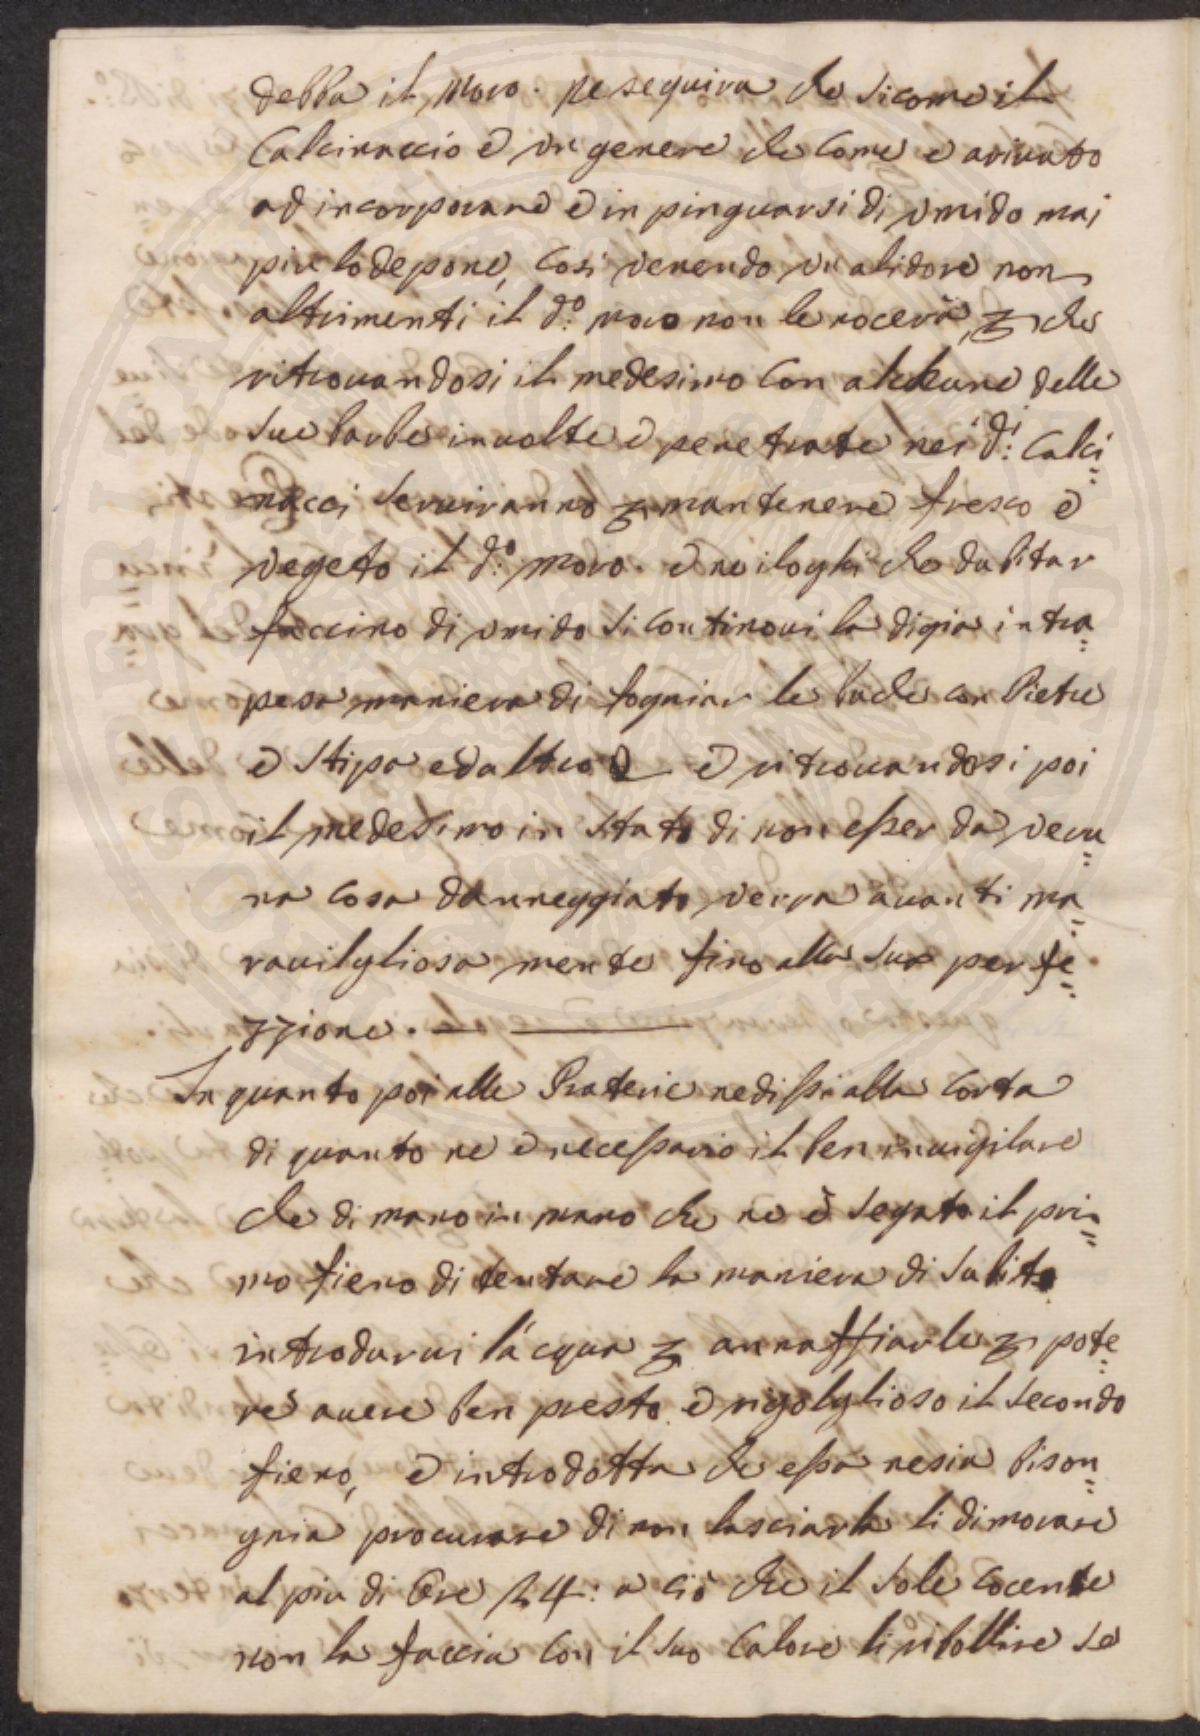 debba il moro. ne seguira che sicome il
Calcinaccio è un genere che come e arivato
ad incorporare e in pinguarsi di umido mai
piu lo depone, cosi venendo un alidore non
altrimenti il d:o moro non le nocerà, p che
ritrouandosi il medesimo con alchune delle
sue barbe inuolte e penetrate nei d:i Calci=
nacci seruiranno p mantenere fresco e
vegeto il d:o moro. e ne iloghi che dubitar
faccino di umido si continoui la digia intra=
pesa maniera di fogniar le buche con Pietre
e stipa ed altro e ritrouandosi poi
il medesimo in stato di non esser da veru=
na cosa danneggiato verra auanti ma=
rauilgliosa mente fino alla sua perfe=
zzione. —
In quanto poi alle Praterie nedissi alla corta
di quanto ne è necessario il ben inuigilare
che di mano in mano che ne è segato il pri=
mo fieno di tentare la maniera di subito
introdurui l'acqua p annaffiarle p pote=
re auere ben presto e rigolglioso il secondo
fieno, e introdotta che essa nesia bison=
gnia procurare di non lasciarla li dimorare
al piu di Ore 24: a ciò che il sole cocente
non la faccia con il suo calore li ribollire se